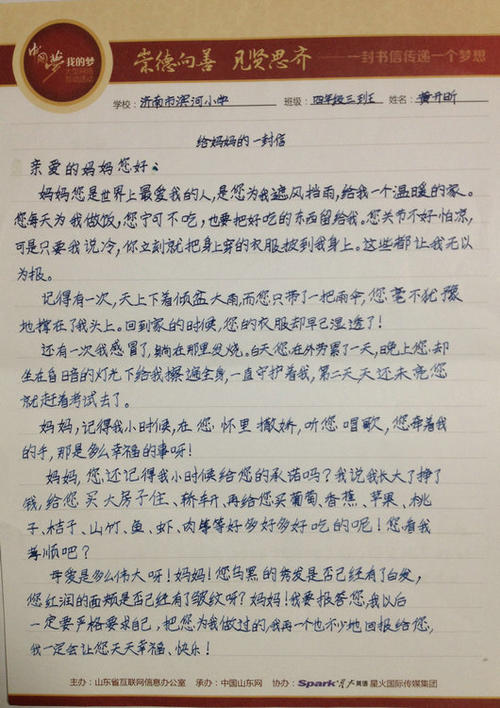 中国梦 我的梦
崇德向善 见贤思齐 一封书信传递一个梦想
学校：济南市滨河小学 班级：四年级三班 姓名：黄开昕
给妈妈的一封信
亲爱的妈妈您好：
妈妈您是世界上最爱我的人，是您为我遮风挡雨，给我一个温暖的家。
您每天为我做饭，您宁可不吃，也要把好吃的东西留给我。您关节不好怕凉，
可是只要我说冷，你立刻就把身上穿的衣服披到我身上。这些都让我无以
为报。
记得有一次，天上下着倾盆大雨，而您只带了一把雨伞，您毫不犹豫
地撑在了我头上。回到家的时候，您的衣服却早已湿透了！
还有一次我感冒了，躺在那里发烧。白天您在外劳累了一天，晚上您却
坐在白暗的灯光下给我擦遍全身，一直守护着我，第二天天还未亮您
就赶着考试去了。
妈妈，记得我小时候，在您怀里撒娇，听您唱歌，您牵着我
的手，那是多么幸福的事呀！
妈妈，您还记得我小时候给您的承诺吗？我说我长大了挣了
钱，给您买大房子住、轿车开，再给您买葡萄、香蕉、苹果、桃
子、桔子、山竹、鱼、虾、肉等等好多好多好吃的呢！您看我
孝顺吧？
母爱是多么伟大呀！妈妈！您乌黑的秀发是否已经有了白发，
您红润的面颊是否已经有了皱纹呀？妈妈！我要报答您，我以后
一定要严格要求自己，把您为我做过的，我再一个也不少地回报给您，
我一定会让您天天幸福、快乐！
主办：山东省互联网信息办公室 承办：中国山东网 协办：Spark 星火英语 星火国际传媒集团